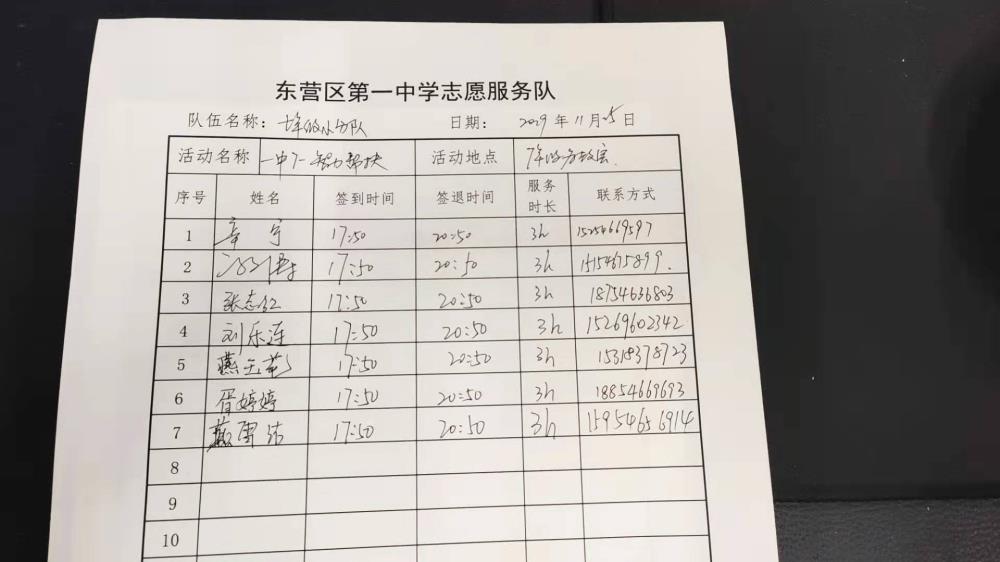 东营区第一中学志愿服务队
队伍名称: 小分队 日期: 年 11 月 日
活动名称 活动地点
序号 姓名 签到时间 签退时间 服务时长 联系方式
1 章宁 17:50 20:50 3h 15254669597
2 17:50 20:50 3h
3 17:50 20:50 3h 18754636803
4 刘乐莲 17:50 20:50 3h 15269602342
5 17:50 20:50 3h 15318378723
6 胥婷婷 17:50 20:50 3h 18854669693
7 17:50 20:50 3h 15954656914
8
9
10